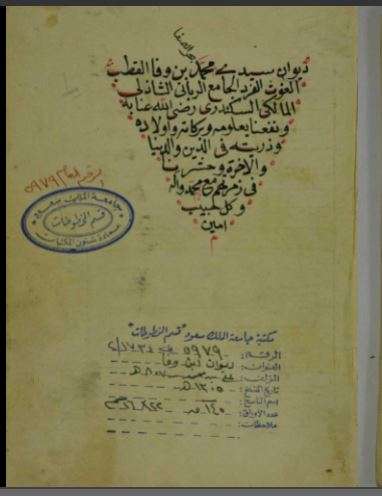 ديوان سيدي محمد بن وفا القطب
الغوث الفرد الجامع الرباني الشاذلي
المالكي السكندري رضي الله عنا به
ونفعنا بعلومه وبركاته واولاده
وذريته في الدين والدنيا
والاخرة وحشرنا
في زمرتهم مع محمد واله
وكل حبيب
امين
رقم العام
٥٩٧٩
جامعة الملك سعود
قسم المخطوطات
عمادة شئون المكتبات
مكتبة جامعة الملك سعود "قسم المخطوطات"
الرقم: ٥٩٧٩
العنوان: ديوان ابن وفا
المؤلف:
تاريخ النسخ: ١٣٠٥ هـ
اسم الناسخ:
عدد الأوراق: ١٤٥
ملاحظات: